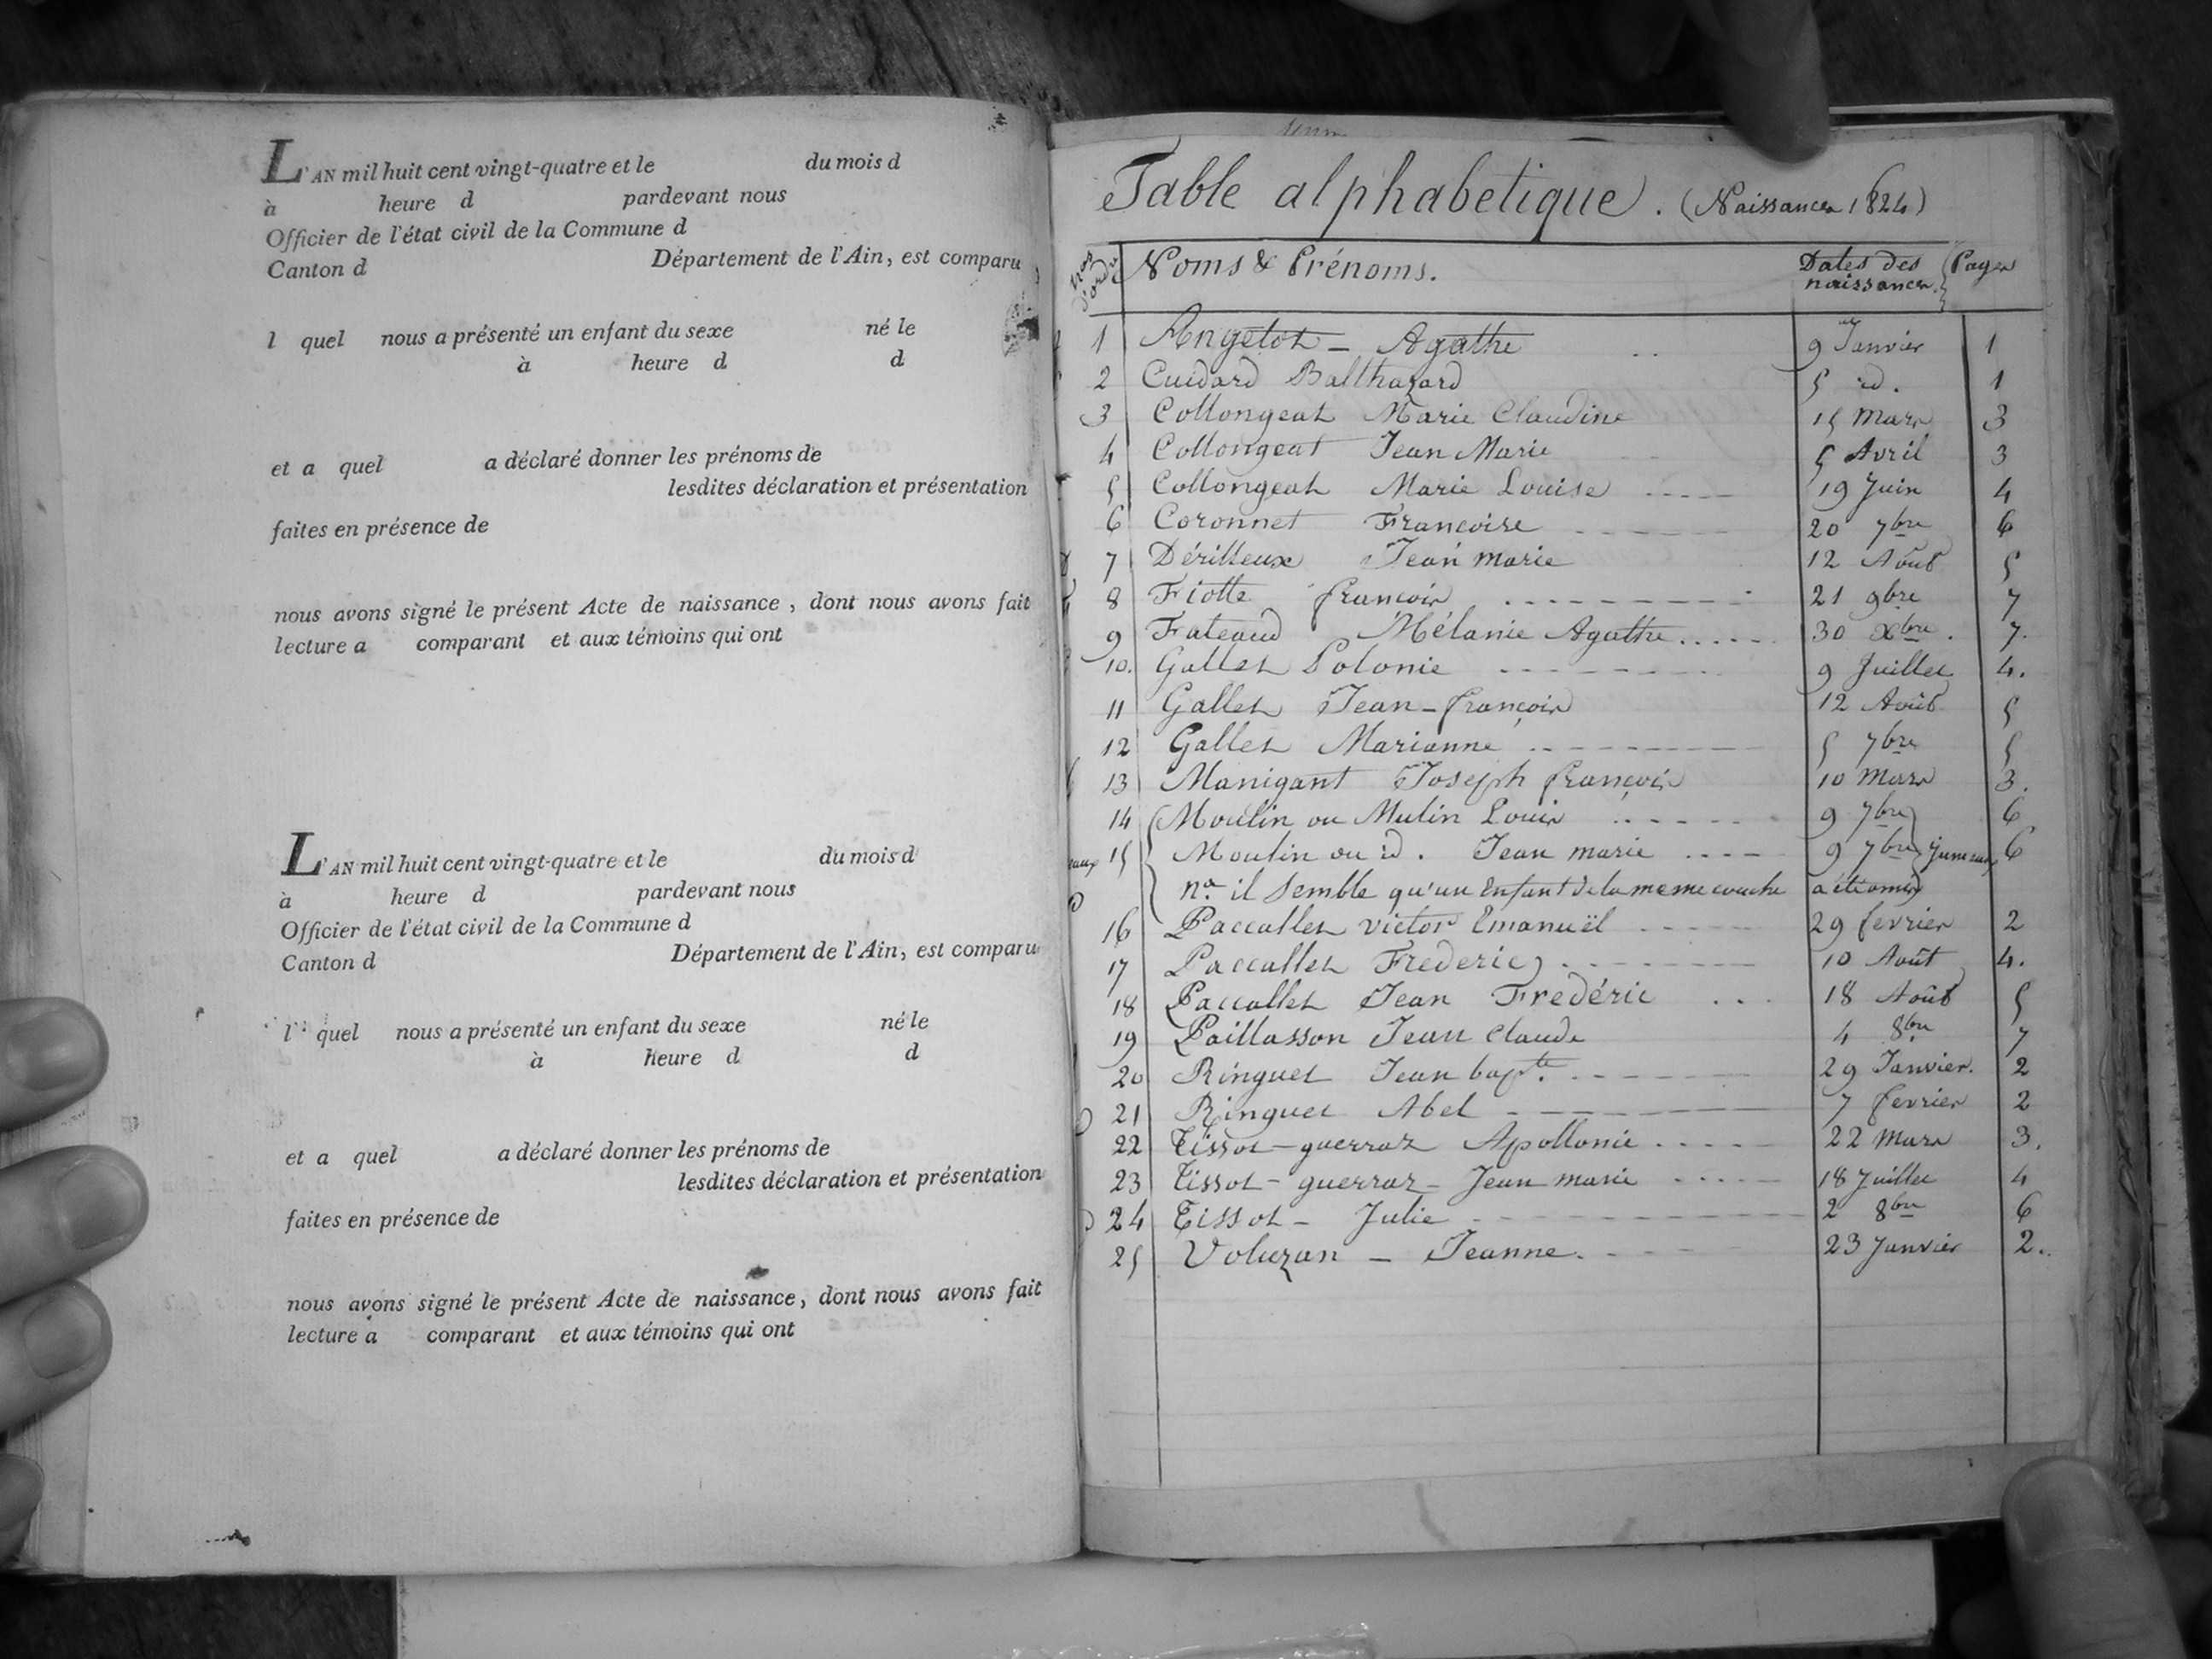 L'AN mil huit cent vingt-quatre et le du mois d
à heure d pardevant nous
Officier de l'état civil de la Commune d
Canton d Département de l'Ain, est comparu
l quel nous a présenté un enfant du sexe né le
à heure d d
et a quel a déclaré donner les prénoms de
lesdites déclaration et présentation
faites en présence de
nous avons signé le présent Acte de naissance, dont nous avons fait
lecture a comparant et aux témoins qui ont
L'AN mil huit cent vingt-quatre et le du mois d
à heure d pardevant nous
Officier de l'état civil de la Commune d
Canton d Département de l'Ain, est comparu
l quel nous a présenté un enfant du sexe né le
à heure d d
et a quel a déclaré donner les prénoms de
lesdites déclaration et présentation
faites en présence de
nous avons signé le présent Acte de naissance, dont nous avons fait
lecture a comparant et aux témoins qui ont
Table alphabetique. (Naissances 1824)
Nos d'ordre Noms & Prénoms. Dates des naissances. Pages
1 Angelot - Agathe 9 Janvier 1
2 Cuidard Balthazard 5 id. 1
3 Collongeat Marie Claudine 15 Mars 3
4 Collongeat Jean Marie 5 Avril 3
5 Collongeat Marie Louise 19 Juin 4
6 Coronnet Francoise 20 7bre 6
7 Dérilleux Jean marie 12 Août 5
8 Fiotte francois 21 9bre 7
9 Fateaud Mélanie Agathe 30 Xbre. 7.
10. Gallet Polonie 9 Juillet 4.
11 Gallet Jean-françois 12 Août 5
12 Gallet Marianne 5 7bre 5
13 Manigant Joseph françois 10 Mars 3.
14 Moulin ou Mulin Louis 9 7bre 6
15 Moulin ou id. Jean marie 9 7bre jumeaux 6
na. il semble qu'un Enfant de la meme couche a été omis
16 Paccallet victor Emanuël 29 fevrier 2
17 Paccallet Frederic 10 Août 4.
18 Paccallet Jean Fredéric 18 Août 5
19 Paillasson Jean Claude 4 8bre 7
20 Ringuet Jean bapte. 29 Janvier. 2
21 Ringuet Abel 7 fevrier 2
22 Tissot-guerraz Apollonie 22 Mars 3.
23 Tissot-guerraz-Jean marie 18 Juillet 4
24 Tissot - Julie 2 8bre 6
25 Voluzan - Jeanne. 23 Janvier 2.